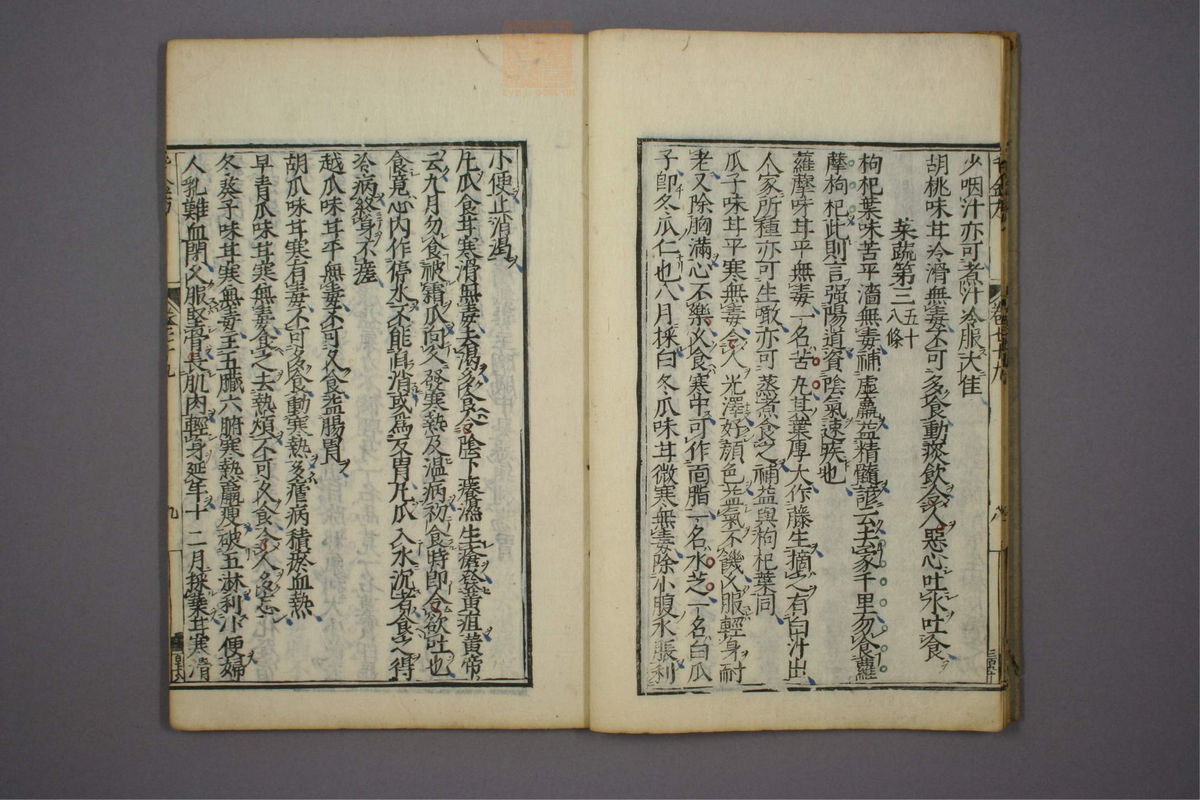 少咽汁亦可煮汁冷服大佳
胡桃味甘冷滑無毒不可多食動痰飲令人惡心吐水吐食
菜蔬第三五十八條
枸杞葉味苦平濇無毒補虛羸益精髓諺云去家千里勿食蘿
摩枸杞此則言强陽道資陰氣速疾也
蘿摩味甘平無毒一名苦丸其葉厚大作藤生摘之有白汁出
人家所種亦可生噉亦可蒸煮食之補益與枸杞葉同
瓜子味甘平寒無毒令人光澤好顏色益氣不飢久服輕身耐
老又除胸滿心不樂久食寒中可作面脂一名水芝一名白瓜
子即冬瓜仁也八月採白冬瓜味甘微寒無毒除小腹水脹利
小便止消渴
凡瓜食甘寒滑無毒去渴多食令陰下癢濕生瘡發黃疸黃帝
云九月勿食被霜瓜向冬發寒熱及溫病初食時即令欲吐也
食竟心內作停水不能自消或爲反胃凡瓜入水沉者食之得
冷病終身不瘥
越瓜味甘平無毒不可久食益腸胃
胡瓜味甘寒有毒不可多食動寒熱多瘧病積瘀血熱
早青瓜味甘寒無毒食之去熱煩不可久食令人多忘
冬葵子味甘寒無毒主五臟六腑寒熱羸瘦破五淋利小便婦
人乳難血閉久服堅骨長肌肉輕身延年十二月採葉甘寒滑